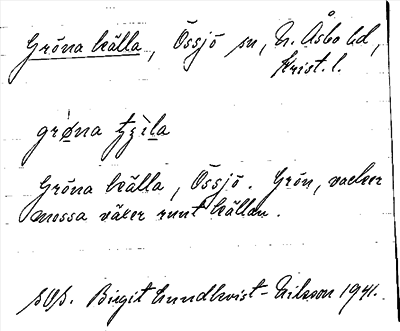 Gröna källa, Össjö sn, N. Åsbo hd,
Krist. l.
grøna
Gröna källa, Össjö. Grön, vacker
mossa växer runt källan.
Birgit Lundkvist-Nilsson 1941.